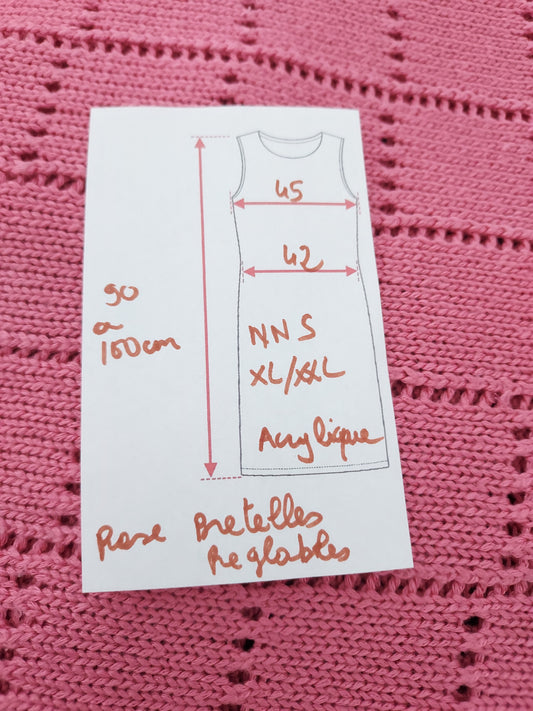 45
42
90
a
100cm
NNS
XL/XXL
Acrylique
Rose Bretelles
Reglables